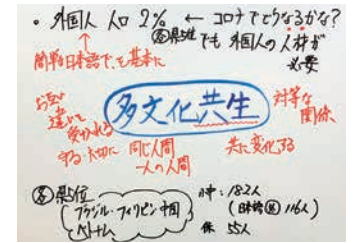 ・外国人 人口 2% ← コロナでどうなるかな?
県独でも 外国人の人材が
必要
簡単日本語で、を基本に
お互い
違いを
受かれる
する・大切に
多文化共生
対等な
関係
同じ人間
一人の人間
共に変化する
県5位
ブラジル・フィリピン・中国
ベトナム
小中:182人
116人)
55人